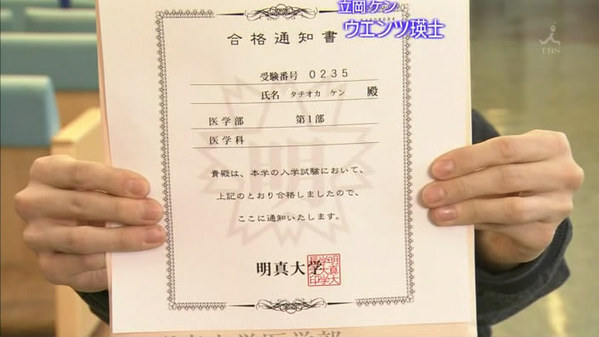 立岡ケン
ウエンツ瑛士
TBS
合格通知書
受験番号 0235
氏名 タチオカ ケン 殿
医学部 第1部
医学科
貴殿は、本学の入学試験において、
上記のとおり合格しましたので、
ここに通知いたします。
明真大学